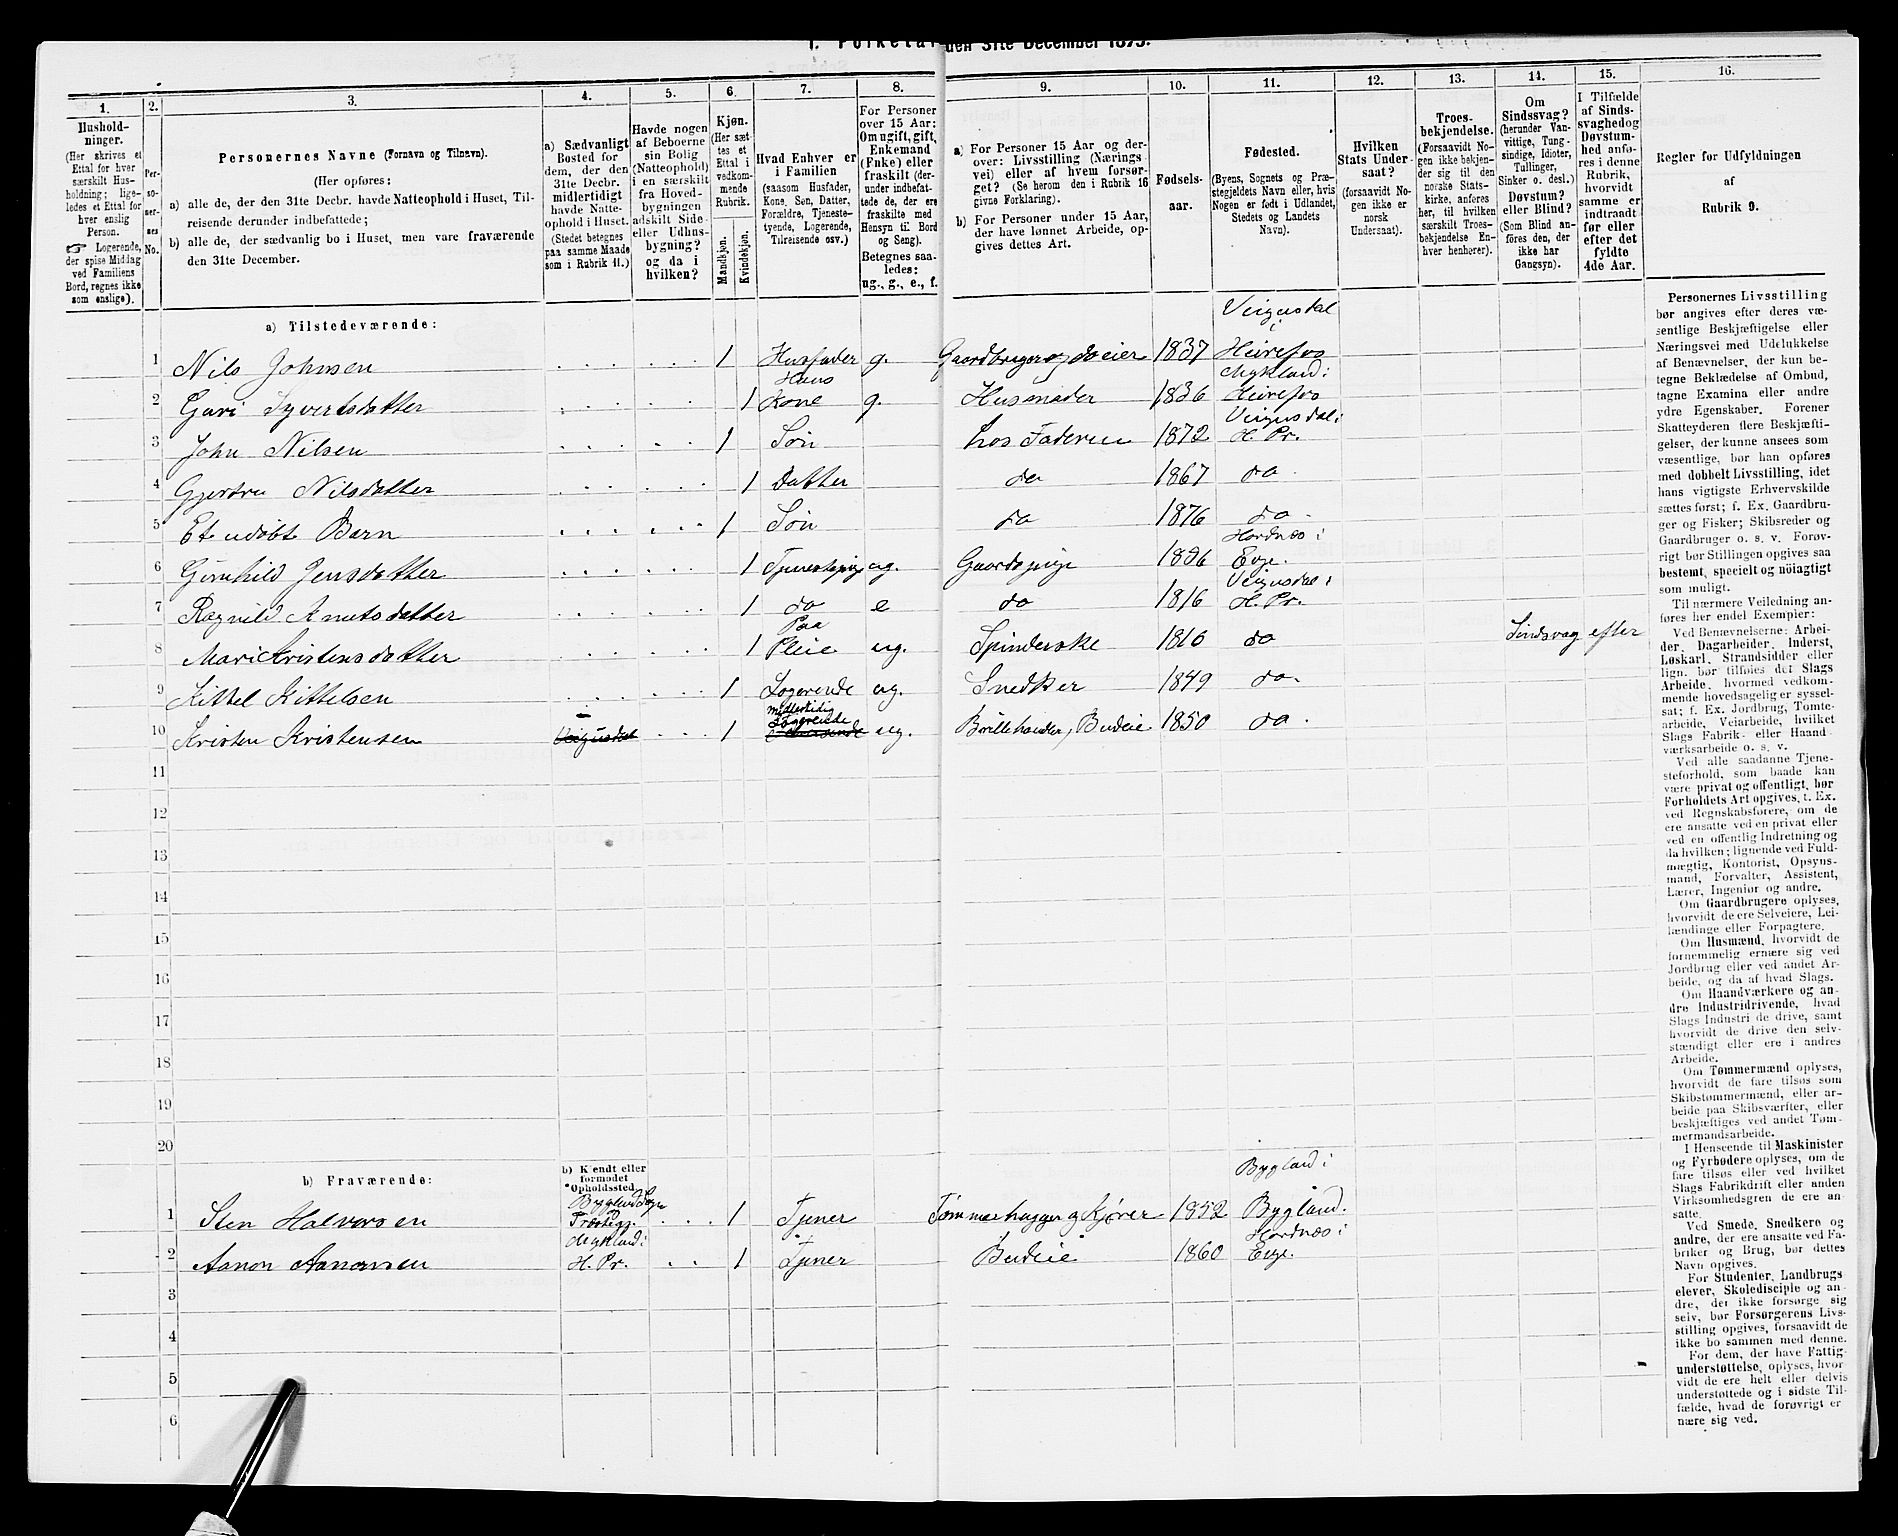 1. Folketal den 31te December 1875.
1.
2.
3.
4.
5.
6.
7.
8.
9.
10.
11.
12.
13.
14.
15.
16.
Hushold-
ninger.
(Her skrives et
Ettal for hver
særskilt Hus-
holdning; lige-
ledes et Ettal for
hver enslig
Person.
☞ Logerende,
der spise Middag
ved Familiens
Bord, regnes ikke
som enslige).
Per-
so-
ner-
nes
No.
Personernes Navne (Fornavn og Tilnavn).
(Her opføres:
a) alle de, der den 31te Decbr. havde Natteophold i Huset, Til-
reisende derunder indbefattede;
b) alle de, der sædvanlig bo i Huset, men vare fraværende
den 31te December.
a) Sædvanligt
Bosted for
dem, der den
31te Decbr.
midlertidigt
havde Natte-
ophold i Huset.
(Stedet betegnes
paa samme Maade
som i Rubrik 11.)
Havde nogen
af Beboerne
sin Bolig
(Natteophold)
i en særskilt
fra Hoved-
bygningen
adskilt Side-
eller Udhus-
bygning?
og da i
hvilken?
Kjøn.
(Her sæt-
tes et
Ettal i
vedkom-
mende
Rubrik.
Mandkjøn.
Kvindekjøn.
Hvad Enhver er
i Familien
(saasom Husfader,
Kone, Søn, Datter,
Forældre, Tjeneste-
tyende, Logerende,
Tilreisende osv.)
For Personer
over 15 Aar:
Om ugift, gift,
Enkemand
(Enke) eller
fraskilt (der-
under indbefat-
tede de, der ere
fraskilte med
Hensyn til Bord
og Seng).
Betegnes saa-
ledes:
ug., g., e., f.
a) For Personer 15 Aar og der-
over: Livsstilling (Nærings-
vei) eller af hvem forsør-
get? (Se herom den i Rubrik 16
givne Forklaring).
b) For Personer under 15 Aar,
der have lønnet Arbeide, op-
gives dettes Art.
Fødsels-
aar.
Fødested.
(Byens, Sognets og Præ-
stegjeldets Navn eller, hvis
Nogen er født i Udlandet,
Stedets og Landets
Navn).
Hvilken
Stats Under-
saat?
(forsaavidt No-
gen ikke er
norsk
Undersaat).
Troes-
bekjendelse.
(Forsaavidt No-
gen ikke bekjen-
der sig til den
norske Stats-
kirke, anføres
her, til hvilken
særskilt Troes-
bekjendelse En-
hver henhører).
Om
Sindssvag?
(herunder Van-
vittige, Tung-
sindige, Idioter,
Tullinger,
Sinker o. desl.)
Døvstum?
eller Blind?
(Som Blind an-
føres den, der
ikke har
Gangsyn).
I Tilfælde
af Sinds-
svaghed og
Døvstum-
hed anfø-
res i denne
Rubrik,
hvorvidt
samme er
indtraadt
før eller
efter det
fyldte
4de Aar.
Regler for Udfyldningen
af
Rubrik 9.
a) Tilstedeværende:
Veigusdal i
1 Nils Johnsen 1 Husfader g. Gaardbruger og Selveier 1837 Heirefos
Hans Mykland i
2 Guri Syvertsdatter 1 Kone g. Husmoder 1836 Heirefos
Veigusdal i
3 John Nilsen 1 Søn hos Faderen 1872 H. Pr.
4 Gjertru Nilsdatter 1 Datter do 1867 do
5 Et udøbt Barn 1 Søn do 1876 do.
Hordnæs i
6 Gunhild Jensdatter 1 Tjenestepige ug. Gaardspige 1836 Evje.
Veigusdal i
7 Ragnild Knutsdatter 1 do e do 1816 H. Pr.
Paa
8 Mari Kristensdatter 1 Pleie ug. Spinderske 1816 do Sindsvag efter
9 Kittel Kittelsen 1 Logerende ug. Snedker 1849 do.
midlertidig
Logerende
10 Kristen Kristensen Veigusdal 1 ug. Brillehandler, Budeie 1850 do.
11
12
13
14
15
16
17
18
19
20
b) Fraværende:
b) Kjendt eller
formodet
Opholdssted.
Bygland i
Bygland Sogn
1 Sten Halvorsen Præstegj. 1 Tjener Tømmerhugger og Kjører 1852 Bygland.
Mykland i
Hordnæs i
2 Aanon Aanonsen H. Pr. 1 Tjener Budeie 1860 Evje.
3
4
5
6
Personernes Livsstilling
bør angives efter deres væ-
sentlige Beskjæftigelse eller
Næringsvei med Udelukkelse
af Benævnelser, der kun be-
tegne Beklædelse af Ombud,
tagne Examina eller andre
ydre Egenskaber. Forener
Skatteyderen flere Beskjæfti-
gelser, der kunne ansees som
væsentlige, bør han opføres
med dobbelt Livsstilling, idet
hans vigtigste Erhvervskilde
sættes først; f. Ex. Gaardbru-
ger og Fisker; Skibsreder og
Gaardbruger o. s. v. Forøv-
rigt bør Stillingen opgives saa
bestemt, specielt og nöiagtigt
som muligt.
Til nærmere Veiledning an-
føres her endel Exempler:
Ved Benævnelserne: Arbei-
der, Dagarbeider, Inderst,
Løskarl, Strandsidder eller
lign. bør tilføies det Slags
Arbeide, hvormed vedkom-
mende hovedsagelig er syssel-
sat; f. Ex. Jordbrug, Tomte-
arbeide, Veiarbeide, hvilket
Slags Fabrik- eller Haand
værksarbeide o. s. v.
Ved alle saadanne Tjene-
steforhold, som baade kan
være privat og offentligt, bør
Forholdets Art opgives, t. Ex.
ved Regnskabsførere, om de
ere ansatte ved en privat eller
ved en offentlig Indretning og
da hvilken; lignende ved Fuld-
mægtig, Kontorist, Opsyns-
mand, Forvalter, Assistent,
Lærer, Ingeniør og andre.
Om Gaardbrugere oplyses,
hvorvidt de ere Selveiere, Lei-
lændinge eller Forpagtere.
Om Husmænd, hvorvidt de
fornemmelig ernære sig ved
Jordbrug eller ved andet Ar-
beide, og da af hvad Slags.
Om Haandværkere og an-
dre Industridrivende, hvad
Slags Industri de drive, samt
hvorvidt de drive den selv-
stændigt eller ere i andres
Arbeide.
Om Tømmermænd oplyses,
hvorvidt de fare tilsøs som
Skibstømmermænd, eller ar-
beide paa Skibsværfter, eller
beskjæftiges ved andet Tøm-
mermandsarbeide.
I Henseende til Maskinister
og Fyrbødere oplyses, om de
fare tilsøs eller ved hvilket
Slags Fabrikdrift eller anden
Virksomhedsgren de ere an-
satte.
Ved Smede, Snedkere og
andre, der ere ansatte ved Fa-
briker og Brug, bør dettes
Navn opgives.
For Studenter, Landbrugs
elever, Skoledisciple og an-
dre, der ikke forsørge sig
selv, bør Forsørgerens Livs-
stilling opgives, forsaavidt de
ikke bo sammen med denne.
For dem, der have Fattig-
understøttelse, oplyses, hvor-
vidt de ere helt eller delvis
understøttede og i sidste Til-
fælde, hvad de forøvrigt er
nære sig ved.